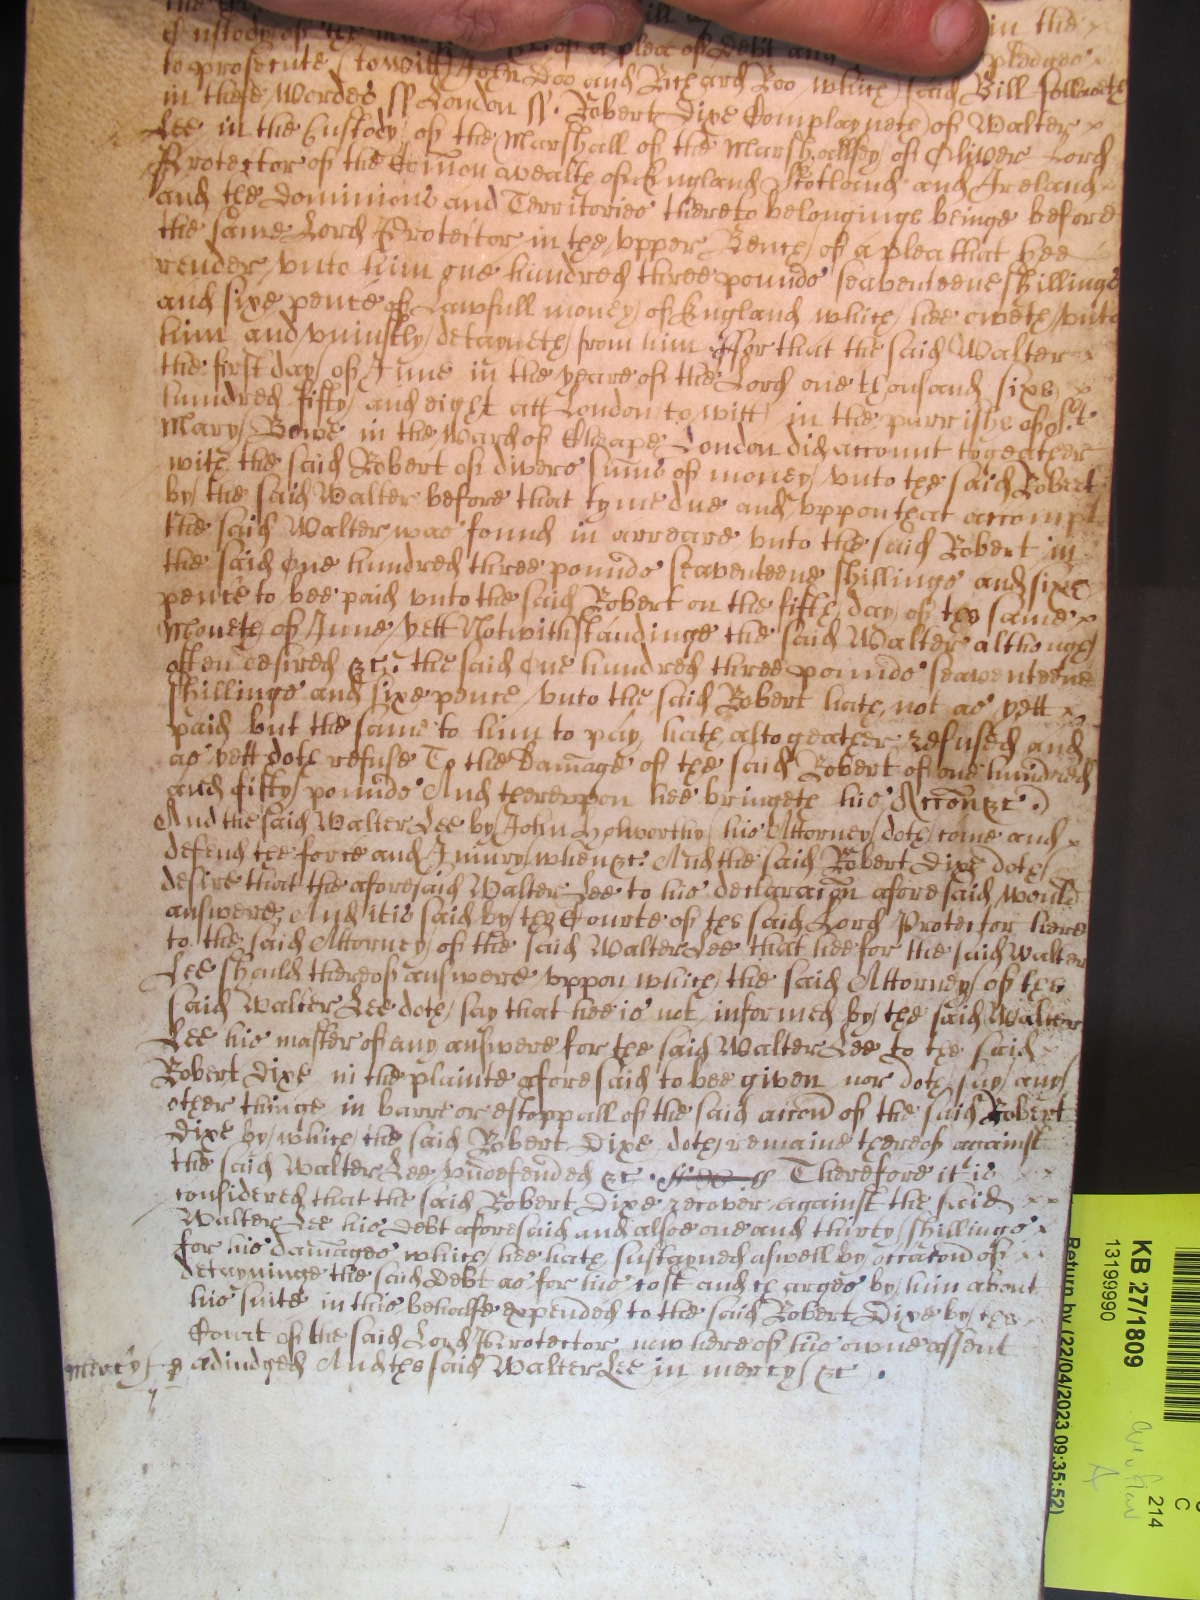 Custody of the of a plea of Debt and in the
to prosecute (towitt) John Doo and Richard Roo which said Bill followeth pledges
in these Wordes ss London ss. Robert Dixe Complayneth of Walter
Lee in the Custody of the Marshall of the Marshallsey of Oliver Lord
Protector of the Com̄on wealth of England Scotland and Ireland
and the Dominions and Territories thereto belonginge beinge before
the same Lord Protector in the vpper Bench of a plea that hee
render vnto him one hundred three pounds seaventeene shillings
and sixe pence of Lawfull money of England which hee oweth vnto
him and vniustly detayneth from him ffor that the said Walter
the first day of June in the yeare of the Lord one thousand sixe
hundred fifty and eight att London to witt in the parrishe of St.
Mary Bowe in the Ward of Cheape London did account togeather
with the said Robert of divers sum̄s of money vnto the said Robert
by the said Walter before that tyme due and vppon that accompt
the said Walter was found in arreare vnto the said Robert in
the said One hundred three pounds seaventeene shillings and sixe
pence to bee paid vnto the said Robert on the fifth day of the same
Moneth of June yett Notwithstandinge the said Walter although
often desired &c. the said One hundred three pounds seaventeene
shillings and sixe pence vnto the said Robert hath not as yett
paid but the same to him to pay hath altogeather refused and
as yett doth refuse To the Dam̄age of the said Robert of one hundred
and fifty pounds And therevppon hee bringeth his Accon̄ &c.)
And the said Walter Lee by John Holworthy his Attorney doth come and
defend the force and Iniury when &c. And the said Robert Dixe doth
desire that the aforesaid Walter Lee to his declarac̄on aforesaid would
answere, And it is said by the Courte of the said Lord Protector here
to the said Attorney of the said Walter Lee that hee for the said Walter
Lee should thereof answere vppon which the said Attorney of the
said Walter Lee doth say that hee is not informed by the said Walter
Lee his master of any answere for the said Walter Lee to the said
Robert Dixe in the plainte aforesaid to bee given nor doth say any
other thinge in barre or estoppall of the said acc̄on of the said Robert
Dixe by which the said Robert Dixe doth remaine thereof against
the said Walter Lee vndefended &c. Therefore it is
considered that the said Robert Dixe recover against the said
Walter Lee his Debt aforesaid and alsoe one and thirty shillings
for his dam̄ages which hee hath sustayned aswell by occac̄on of
detayninge the said Debt as for his cost and charges by him about
his suite in this behalfe expended to the said Robert Dixe by the
Court of the said Lord Protector now here of his owne assent
mercy adiudged And the said Walter Lee in mercy &c.
KB 27/1809
13199990
Return by (22/04/2023 09:35:52)
214
C